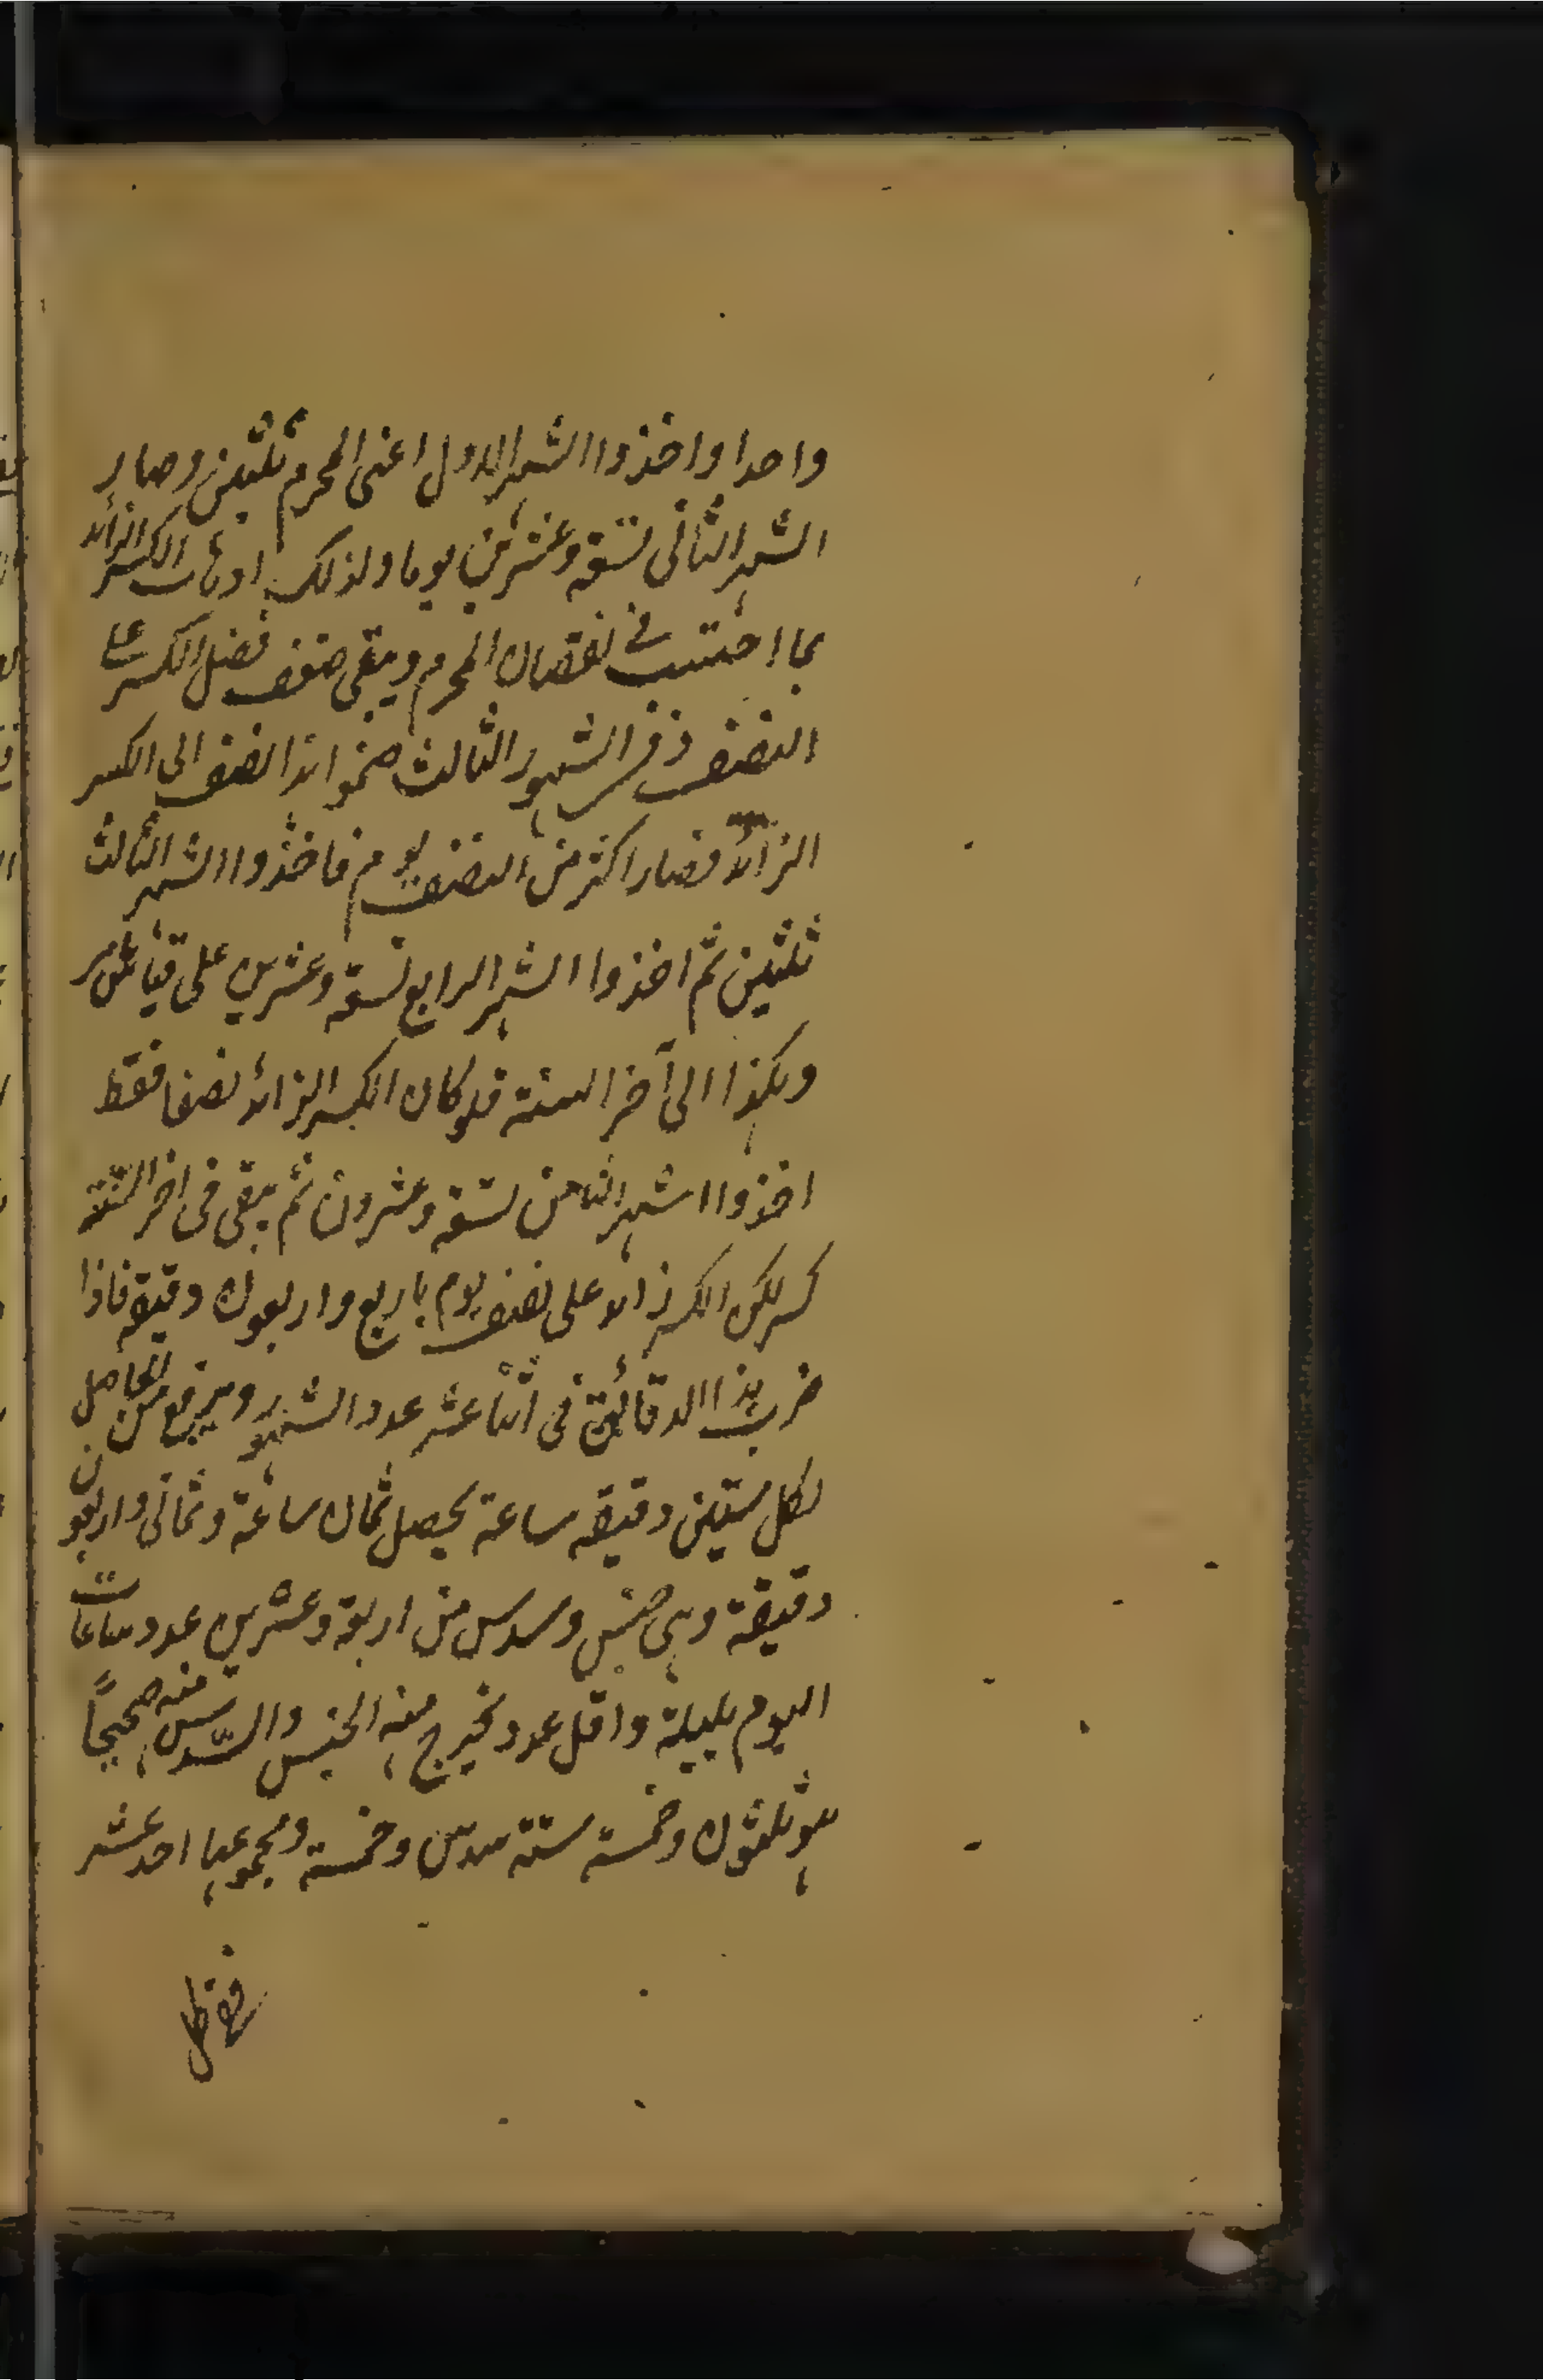 واحدا واخذوا الشهر الاول اعنى المحرم ثلثين وصار
الشهر الثانى تسعة وعشرين يوما ولذلك اذهاب الكسر الزائد
بما احتسب فى نقصان المحرم ويبقى ضعف فضل الكسر على
النصف فى الشهور الثالث ضموا هذا الضعف الى الكسر
الزائد فصار اكثر من النصف يوم فاخذوا الشهر الثالث
ثلثين ثم اخذوا الشهر الرابع تسعة وعشرين على قياس مر
وهكذا الى آخر السنة فلو كان الكسر الزائد نصفا فقط
اخذوا اشهر الثامن تسعة وعشرون ثم يبقى فى اخر السنة
كسر لكن الكسر زائد على نصف يوم باربع واربعون دقيقة فاذا
ضرب هذا الدقائق فى اثنا عشر عدد الشهور ويرفع من الحاصل
لكل ستين دقيقه ساعة يحصل ثمان ساعة وثمانى واربعون
دقيقة وهى خمس وسدس من اربعة وعشرين عدد ساعات
اليوم بليلة واقل عدد يخرج منه الخمس والسدس منه صحيحاً
هو ثلثون وخمسة ستة سدس وخمسة ومجموعها احد عشر